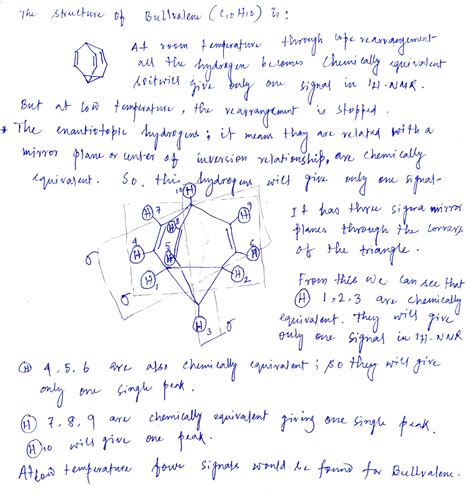 The structure of Bullvalene (C10H10) is:
At room temperature through cope rearrangement
all the hydrogen becomes chemically equivalent
so it will give only one signal in 1H-NMR.
But at low temperature, the rearrangement is stopped.
* The enantiotopic hydrogens; it means they are related with a
mirror plane or center of inversion relationship, are chemically
equivalent. So, this hydrogens will give only one signal.
10 H
H 7
H 8
H 9
4 H
5 H
H 6
H 1
H 2
H 3
σ
σ
σ
It has three sigma mirror
planes through the corners
of the triangle.
From this we can see that
H 1,2,3 are chemically
equivalent. They will give
only one signal in 1H-NMR
H 4,5,6 are also chemically equivalent; so they will give
only one single peak.
H 7,8,9 are chemically equivalent giving one single peak.
H 10 will give one peak.
At low temperature four signals would be found for Bullvalene.